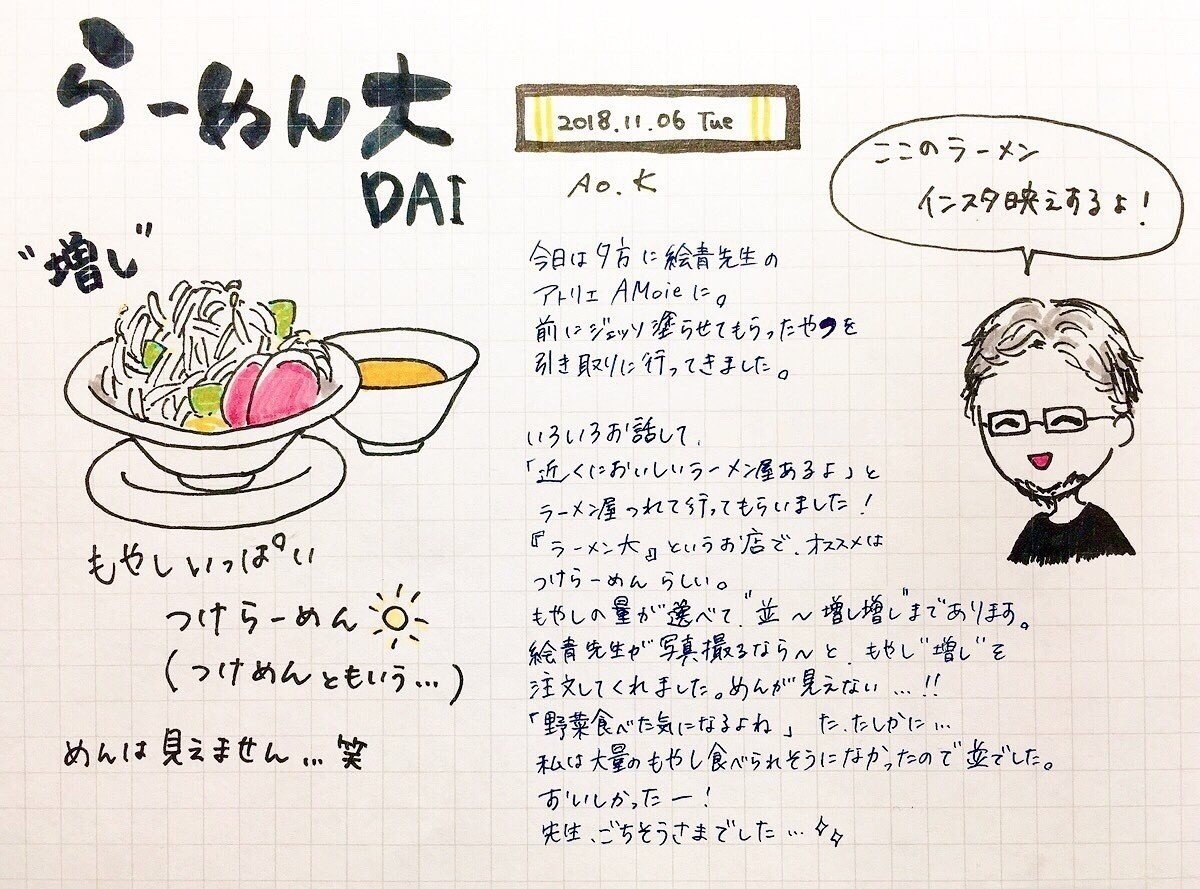 らーめん大
DAI
"増し"
もやしいっぱい
つけらーめん
(つけめんともいう...)
めんは見えません...笑
2018.11.06 Tue
Ao.K
今日は夕方に絵青先生の
アトリエ AMoieに。
前にジェッソ塗らせてもらったやつを
引き取りに行ってきました。
いろいろお話して、
「近くにおいしいラーメン屋あるよ」と
ラーメン屋つれて行ってもらいました!
『ラーメン大』というお店で、オススメは
つけらーめんらしい。
もやしの量が選べて、"並〜増し増し"まであります。
絵青先生が写真撮るなら〜と、もやし"増し"を
注文してくれました。めんが見えない...!!
「野菜食べた気になるよね」た、たしかに...
私は大量のもやし食べられそうになかったので並でした。
おいしかったー!
先生、ごちそうさまでした...
ここのラーメン
インスタ映えするよ!